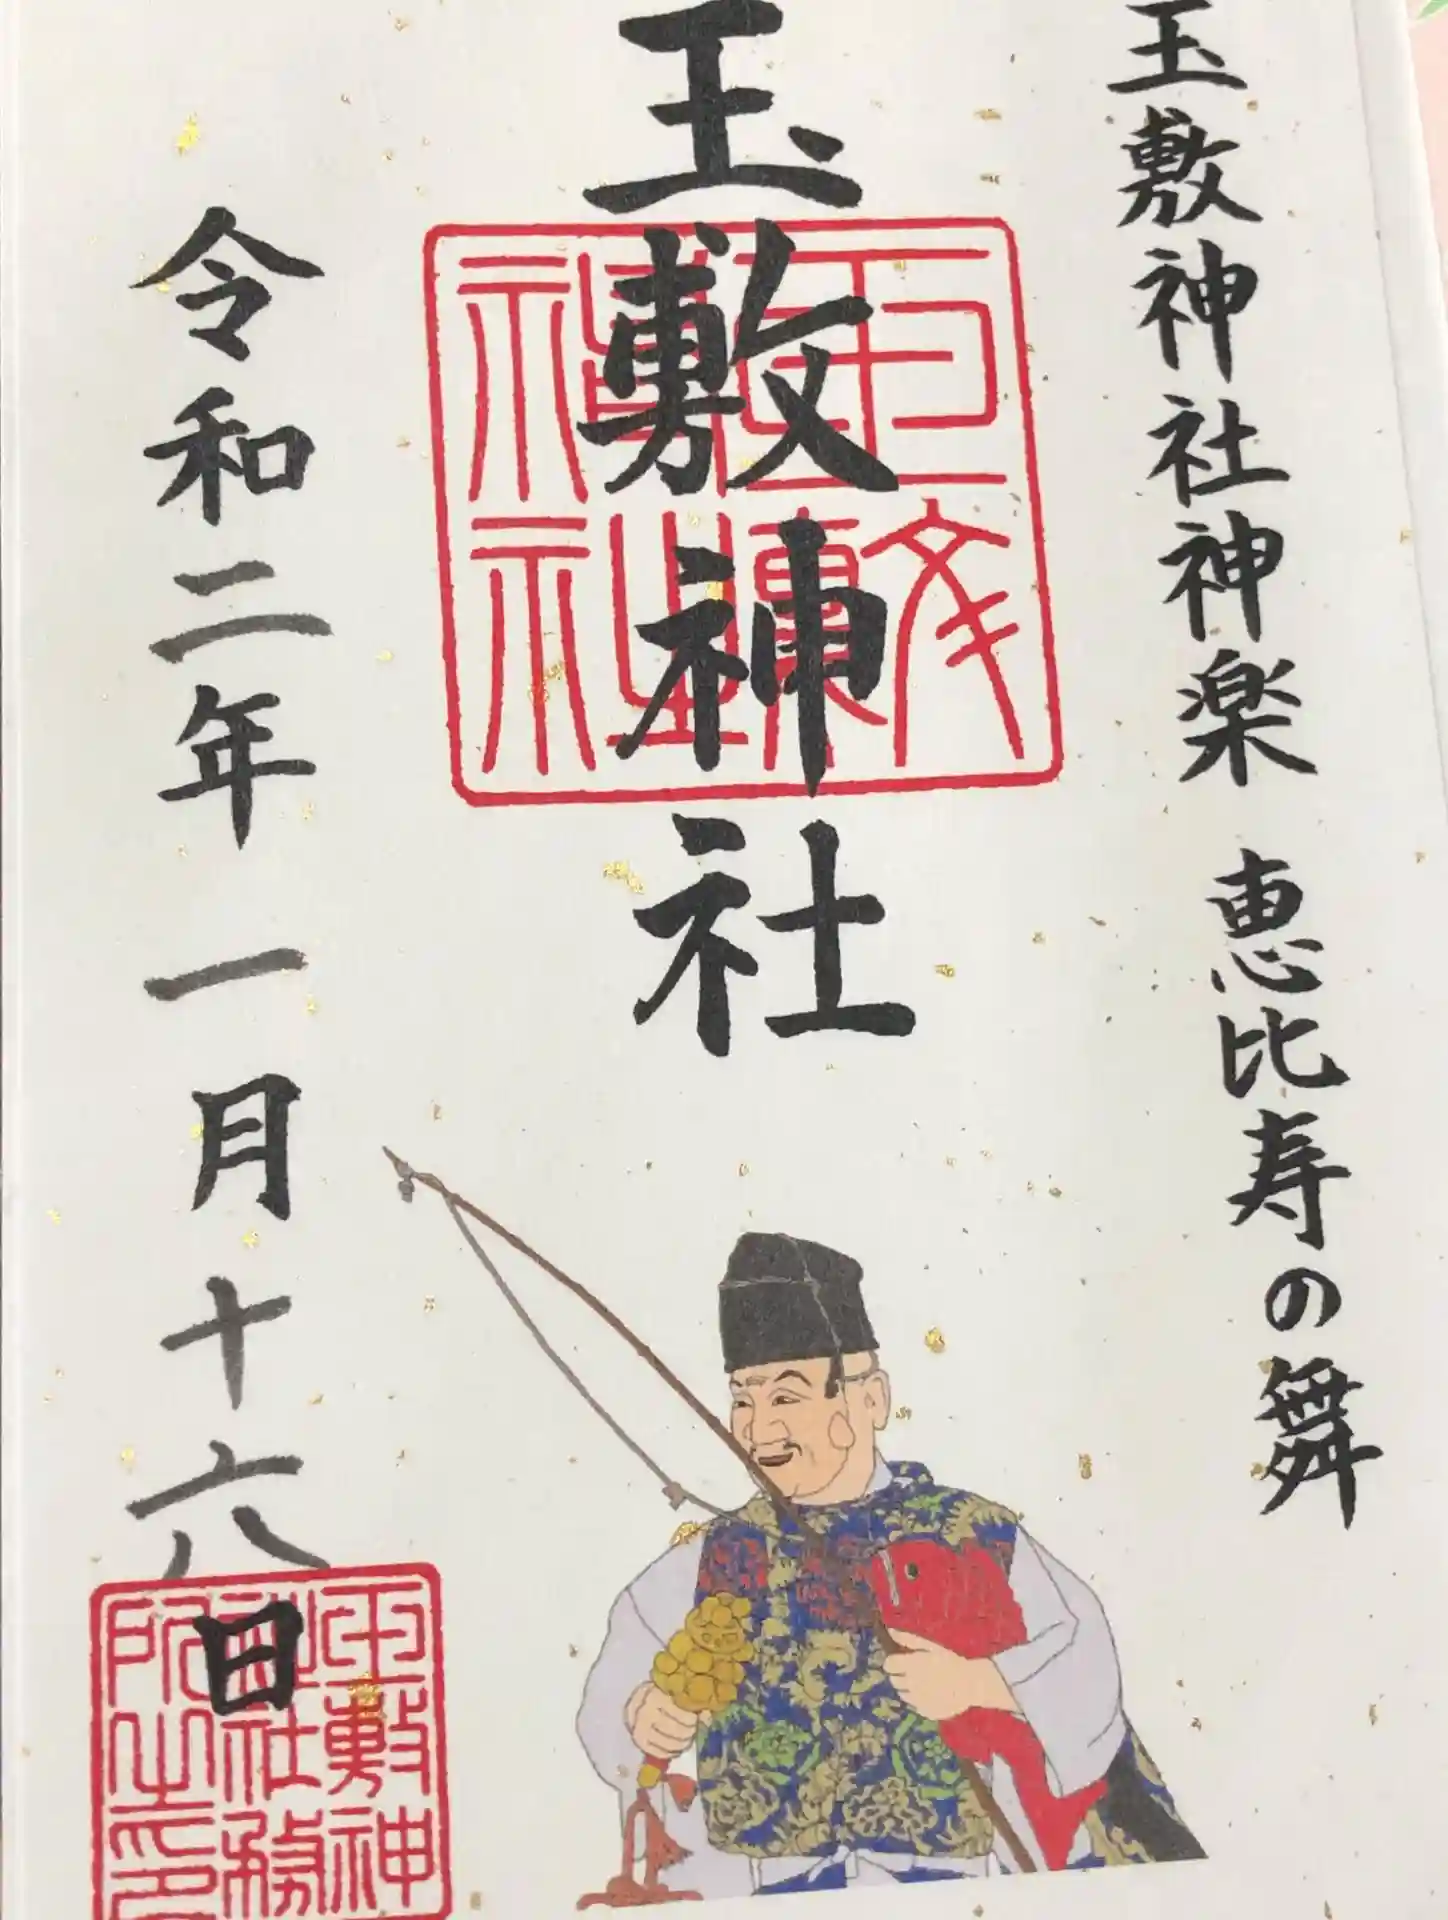 玉敷神社神楽 恵比寿の舞
玉敷神社
玉敷神社
令和二年一月十六日
玉敷神
社務
所之印